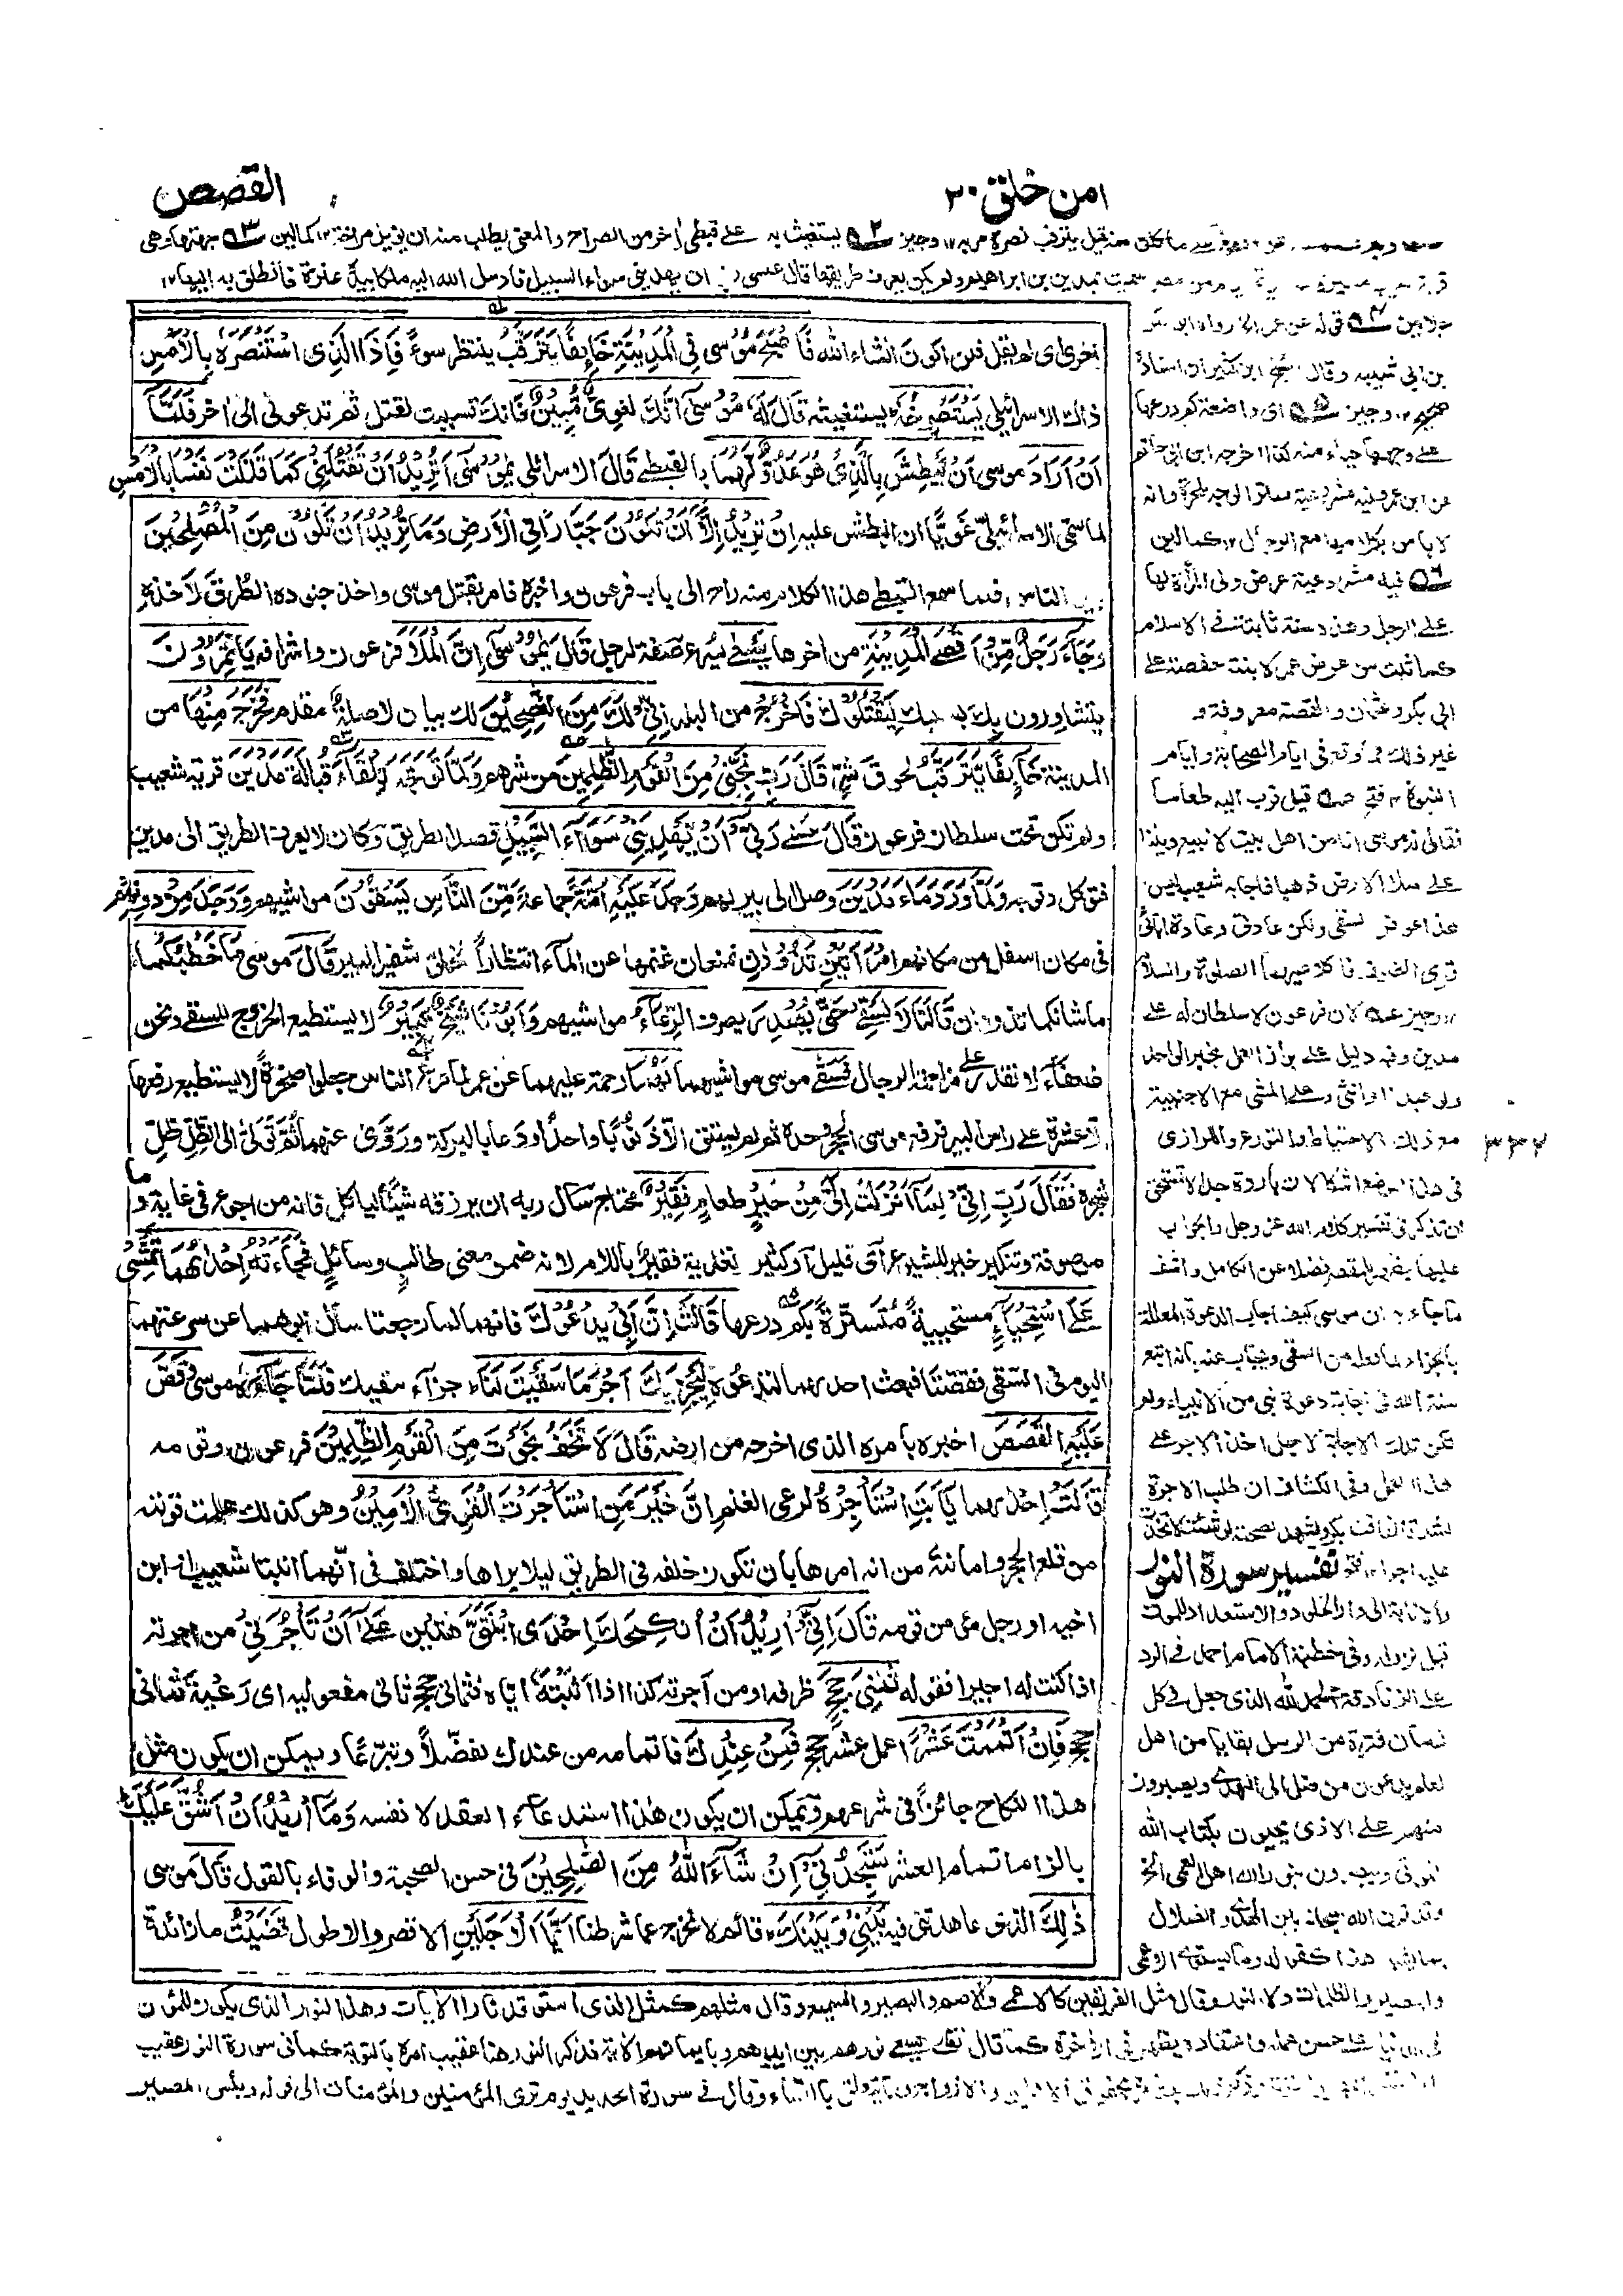 امن خلق ٢٠
القصص
يستغيث به على قبطي اخر من الصراخ والمعنى يطلب منه ان يزيل صراخه ١٢ كمالين جهتها وهي
سميت بمدين بن ابراهيم ولم يكن يعرف طريقها قال عسى ربي ان يهديني سواء السبيل فارسل الله اليه ملكا بيده عنزة فانطلق به اليها ١٢
اخرى اى لم يقل فلن اكون انشاء الله فَاَصْبَحَ مُوْسى فِى الْمَدِيْنَةِ خَآئِفًا يَّتَرَقَّبُ ينتظر سوءً فَاِذَا الَّذِى اسْتَنْصَرَهٗ بِالْاَمْسِ
ذاك الاسرائيلي يَسْتَصْرِخُهٗ يستغيثه قَالَ لَهٗ مُوْسٰٓى اِنَّكَ لَغَوِىٌّ مُّبِيْنٌ فانك تسببت لقتل ثم تدعونى الى اخر فَلَمَّآ
اَنْ اَرَادَ موسى اَنْ يَّبْطِشَ بِالَّذِىْ هُوَ عَدُوٌّ لَّهُمَا بالقبطى قَالَ الاسرائلى يٰمُوْسٰٓى اَتُرِيْدُ اَنْ تَقْتُلَنِىْ كَمَا قَتَلْتَ نَفْسًا بِالْاَمْسِ
لما سمى الاسرائيلى غَوِيًّا ان البطش عليه اِنْ تُرِيْدُ اِلَّآ اَنْ تَكُوْنَ جَبَّارًا فِى الْاَرْضِ وَمَا تُرِيْدُ اَنْ تَكُوْنَ مِنَ الْمُصْلِحِيْنَ
بين الناس فلما سمع القبطى هذا الكلام منه راح الى باب فرعون واخبره فامر بقتل موسى واخذ جنوده الطرق لاخذه
وَجَآءَ رَجُلٌ مِّنْ اَقْصَى الْمَدِيْنَةِ من اخرها يَسْعٰى يسرع صفة لرجل قَالَ يٰمُوْسٰٓى اِنَّ الْمَلَاَ فرعون واشرافه يَاْتَمِرُوْنَ
يتشاورون بِكَ بسببك لِيَقْتُلُوْكَ فَاخْرُجْ من البلد اِنِّىْ لَكَ مِنَ النّٰصِحِيْنَ لك بيان لا صلة مقدم فَخَرَجَ مِنْهَا من
المدينة خَآئِفًا يَّتَرَقَّبُ لحوق شئ قَالَ رَبِّ نَجِّنِىْ مِنَ الْقَوْمِ الظّٰلِمِيْنَ من شرهم وَلَمَّا تَوَجَّهَ تِلْقَآءَ قبالة مَدْيَنَ قرية شعيب
ولم تكن تحت سلطان فرعون قَالَ عَسٰى رَبِّىْٓ اَنْ يَّهْدِيَنِىْ سَوَآءَ السَّبِيْلِ قصد الطريق وكان لا يعرف الطريق الى مدين
فتوكل على ربه وَلَمَّا وَرَدَ مَآءَ مَدْيَنَ وصل الى بير لهم وَجَدَ عَلَيْهِ اُمَّةً جماعة مِّنَ النَّاسِ يَسْقُوْنَ مواشيهم وَوَجَدَ مِنْ دُوْنِهِمُ
فى مكان اسفل من مكانهم امْرَاَتَيْنِ تَذُوْدٰنِ تمنعان غنمها عن المآء انتظاراً لخلو شفير البير قَالَ موسى مَا خَطْبُكُمَا
ما شانكما تذودان قَالَتَا لَا نَسْقِىْ حَتّٰى يُصْدِرَ يصرف الرِّعَآءُ مواشيهم وَاَبُوْنَا شَيْخٌ كَبِيْرٌ لا يستطيع الخروج للسقى ونحن
ضعفآء لا نقدر على مزاحمة الرجال فَسَقٰى موسى مواشيهما لَهُمَا رحمة عليهما عن عمر لما فرغ الناس جعلوا صخرةً لا يستطيع رفعها
الا عشرة على راس البير فرفع موسى الحجر وحده ثم لم يستق الّا ذنوبًا واحدًا ودعا بالبركة وروى عنهما ثُمَّ تَوَلّٰى اِلَى الظِّلِّ ظل
شجرة فَقَالَ رَبِّ اِنِّىْ لِمَآ اَنْزَلْتَ اِلَىَّ مِنْ خَيْرٍ طعام فَقِيْرٌ محتاج سأل ربه ان يرزقه شيئًا لياكل فانه من الجوع فى غاية وما
موصوفة وتنكير خير للشيوع اى قليل اوكثير تعدية فقير باللام لانه ضمن معنى طالب وسائل فَجَآءَتْهُ اِحْدٰىهُمَا تَمْشِىْ
عَلَى اسْتِحْيَآءٍ مستحيية مُتستّرة بكم درعها قَالَتْ اِنَّ اَبِىْ يَدْعُوْكَ فانهما لما رجعتا سأل ابوهما عن سرعتهما
اليوم فى السقى فقصتا فبعث احدٰهما لتدعوه لِيَجْزِيَكَ اَجْرَ مَا سَقَيْتَ لَنَا جزآء سقيك فَلَمَّا جَآءَهٗ موسى وَقَصَّ
عَلَيْهِ الْقَصَصَ اخبره بامره الذى اخرجه من ارضه قَالَ لَا تَخَفْ نَجَوْتَ مِنَ الْقَوْمِ الظّٰلِمِيْنَ فرعون وقومه
قَالَتْ اِحْدٰىهُمَا يٰٓاَبَتِ اسْتَاْجِرْهُ لرعى الغنم اِنَّ خَيْرَ مَنِ اسْتَاْجَرْتَ الْقَوِىُّ الْاَمِيْنُ وهو كذلك علمت قوته
من قلع الحجر وامانتهٗ من انه امرها بان تكون خلفه فى الطريق ليلا يراها واختلف فى انّهما ابنتا شعيب او ابن
اخيه او رجل مؤمن من قومه قَالَ اِنِّىْٓ اُرِيْدُ اَنْ اُنْكِحَكَ اِحْدَى ابْنَتَىَّ هٰتَيْنِ عَلٰٓى اَنْ تَاْجُرَنِىْ من اجرته
اذا كنت له اجيرا فقوله ثَمٰنِىَ حِجَجٍ ظرفه او من آجرته كذا اذا اثبتهٗ اياه فثمانى حجج ثانى مفعوليه اى رَعْيَةَ ثمانى
حجج فَاِنْ اَتْمَمْتَ عَشْرًا عمل عشر حجج فَمِنْ عِنْدِكَ فاتمامه من عندك تفضّلًا وتبرّعًا ويمكن ان يكون مثل
هذا النكاح جائزاً فى شرعهم ويمكن ان يكون هذا استدعاء العقد لا نفسه وَمَآ اُرِيْدُ اَنْ اَشُقَّ عَلَيْكَ
بالزام اتمام العشر سَتَجِدُنِىْٓ اِنْ شَآءَ اللّٰهُ مِنَ الصّٰلِحِيْنَ فى حسن الصحبة والوفاء بالقول قَالَ موسى
ذٰلِكَ الذى عاهدتنى فيه بَيْنِىْ وَبَيْنَكَ قائم لا نخرج عما شرطنا اَيَّمَا الْاَجَلَيْنِ الاقصر والاطول قَضَيْتُ ما زائدة
جلالين قوله عن عمر الخ رواه ابو بكر
بن ابى شيبه وقال الشيخ ابن كثير ان اسناده
صحيح ١٢ وجيز اى واضعة كم درعها
على وجهها حياء منه كذا اخرجه ابن ابى حاتم
عن ابن عمر وفيه مشروعية ستر الوجه للحرة وانه
لا باس بكلامها مع الرجال ١٢ كمالين
فيه مشروعية عرض ولى المرأة لها
على الرجل وهذه سنة ثابتة فى الاسلام
كما ثبت من عرض عمر لابنته حفصة على
ابى بكر وعثمان والقصة معروفة و
غير ذلك مما وقع فى ايام الصحابة وايام
النبوة ١٢ فتح قيل قرب اليه طعاما
فقال موسى انا من اهل بيت لا نبيع ديننا
على ملأ الارض ذهبا فاجابه شعيب ليس
هذا عوض لسقى ولكن عادتى وعادة ابائى
قرى الضيف فاكلا عليهما الصلوة والسلام
١٢ وجيز لان فرعون لا سلطان له على
مدين وفيه دليل على جواز العمل بخبر الواحد
ولو عبدا او انثى وعلى المشى مع الاجنبية
مع ذلك الاحتياط والتورع وللرازى
فى هذا الموضع اشكالات باردة جدا لا تستحق
ان تذكر فى تفسير كلام الله عز وجل والجواب
عليها يظهر للمقصر فضلا عن الكامل واشف
ما جاء به ان موسى كيف اجاب الدعوة المعللة
بالجزاء لما فعله من السقى ويجاب عنه بانه اتبع
سنة الله فى اجابة دعوة نبى من الانبياء ولم
تكن تلك الاجابة لاجل اخذ الاجر على
هذا العمل وفى الكشاف ان طلب الاجرة
لشدة الفاقة غير منكر ويشهد لصحته لو شئت لاتخذت
عليه اجرا ١٢ فتح تفسير سورة النور
والانابة الى دار الخلود والاستعداد للموت
قبل نزوله وفى خطبة الامام احمد فى الرد
على الزنادقة الحمد لله الذى جعل فى كل
زمان فترة من الرسل بقايا من اهل
العلم يدعون من ضل الى الهدى ويصبرون
منهم على الاذى يحيون بكتاب الله
الموتى ويبصرون بنور الله اهل العمى الخ
وقد قرن الله سبحانه بين الهدى والضلال
هذا كقوله وما يستوى الاعمى
والبصير ولا الظلمات ولا النور وقال مثل الفريقين كالاعمى والاصم والبصير والسميع وقال مثلهم كمثل الذى استوقد نارا الآيات وهذا النور الذى يكون للمؤمن
فى الدنيا على حسن عمله واعتقاده يظهر فى الاخرة كما قال تعالى يسعى نورهم بين ايديهم وبايمانهم الاية فذكر النور هنا عقيب امره بالتوبة كما فى سورة النور عقيب
وقال فى سورة الحديد يوم ترى المؤمنين والمؤمنات الى قوله وبئس المصير
٣٣٢